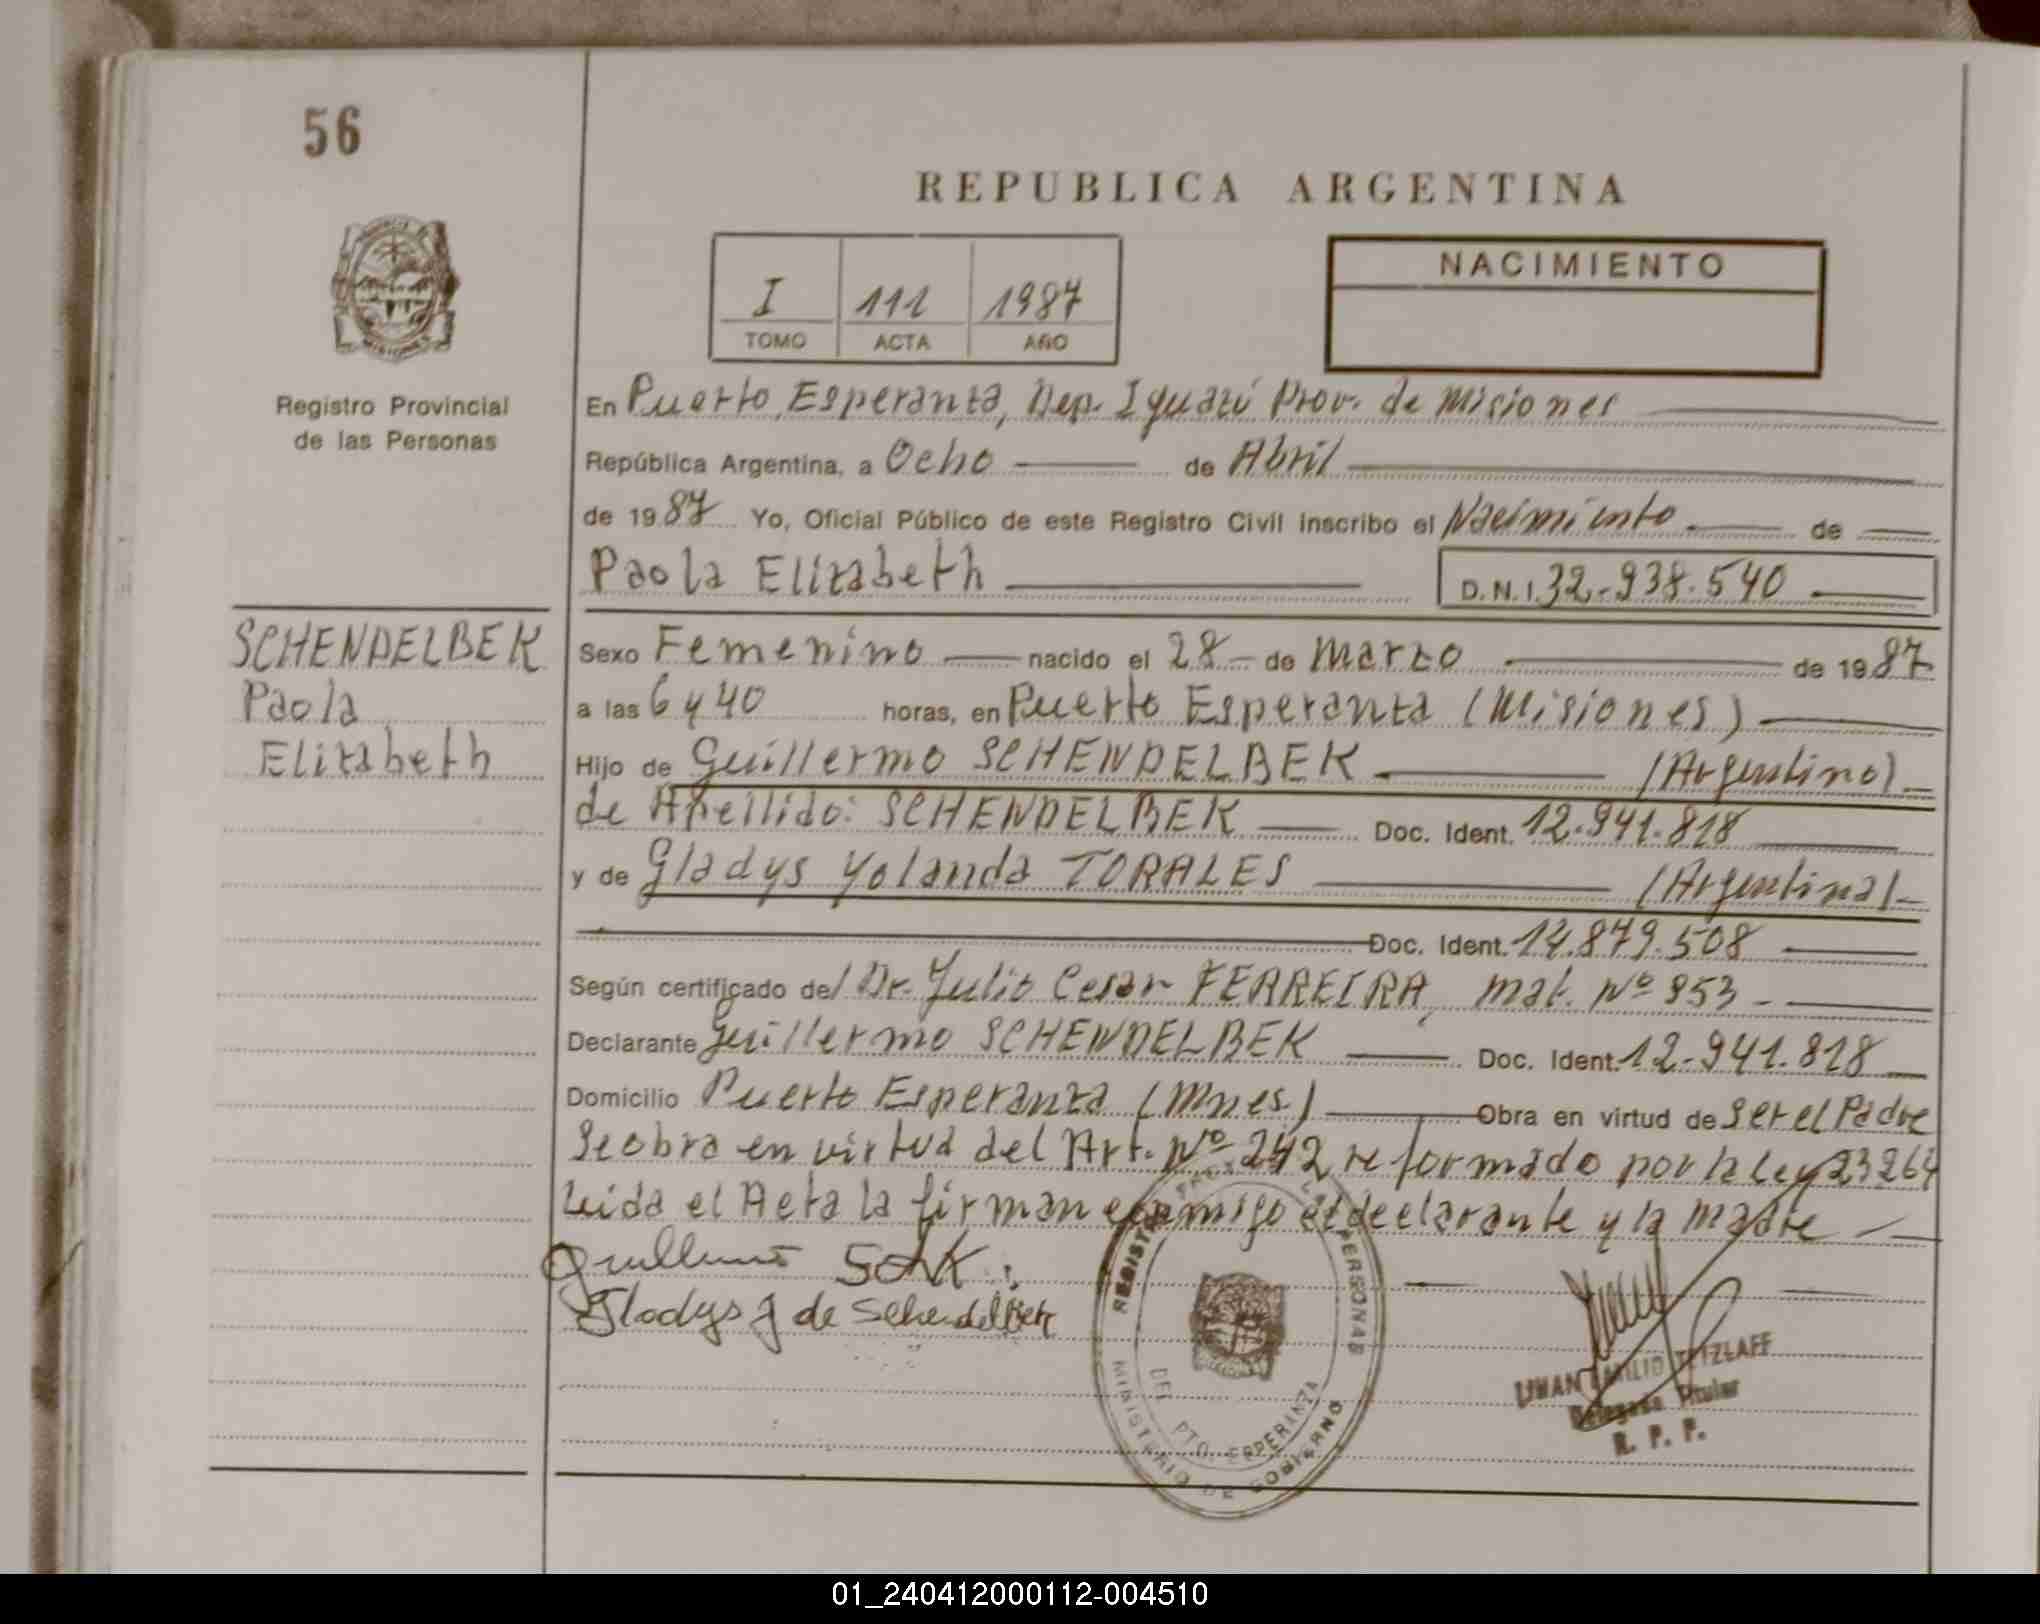 56
REPUBLICA ARGENTINA
I 111 1987
TOMO ACTA AÑO
NACIMIENTO
Registro Provincial
de las Personas
En Puerto Esperanza, Dep. Iguazú Prov. de Misiones
República Argentina, a Ocho de Abril
de 1987 Yo, Oficial Público de este Registro Civil inscribo el Nacimiento de
Paola Elizabeth D.N.I. 32.938.540
SCHENDELBEK
Paola
Elizabeth
Sexo Femenino nacido el 28 de Marzo de 1987
a las 6 y 40 horas, en Puerto Esperanza (Misiones)
Hijo de Guillermo SCHENDELBEK (Argentino)
de Apellido: SCHENDELBEK Doc. Ident. 12.941.818
y de Gladys Yolanda TORALES (Argentina)
Doc. Ident. 14.879.508
Según certificado del Dr. Julio Cesar FERREIRA, mat. Nº 953
Declarante Guillermo SCHENDELBEK Doc. Ident. 12.941.818
Domicilio Puerto Esperanza (Mnes) Obra en virtud de ser el Padre
Se obra en virtud del Art. Nº 242 reformado por la Ley 23264
Leida el Acta la firman conmigo el declarante y la madre
Gladys J de Schendelbek
REGISTRO PROV. LAS PERSONAS
DEL PTO. ESPERANZA
MINISTERIO DE GOBIERNO
EMILIO TETZLAFF
Delegado Titular
R. P. P.
01_240412000112-004510